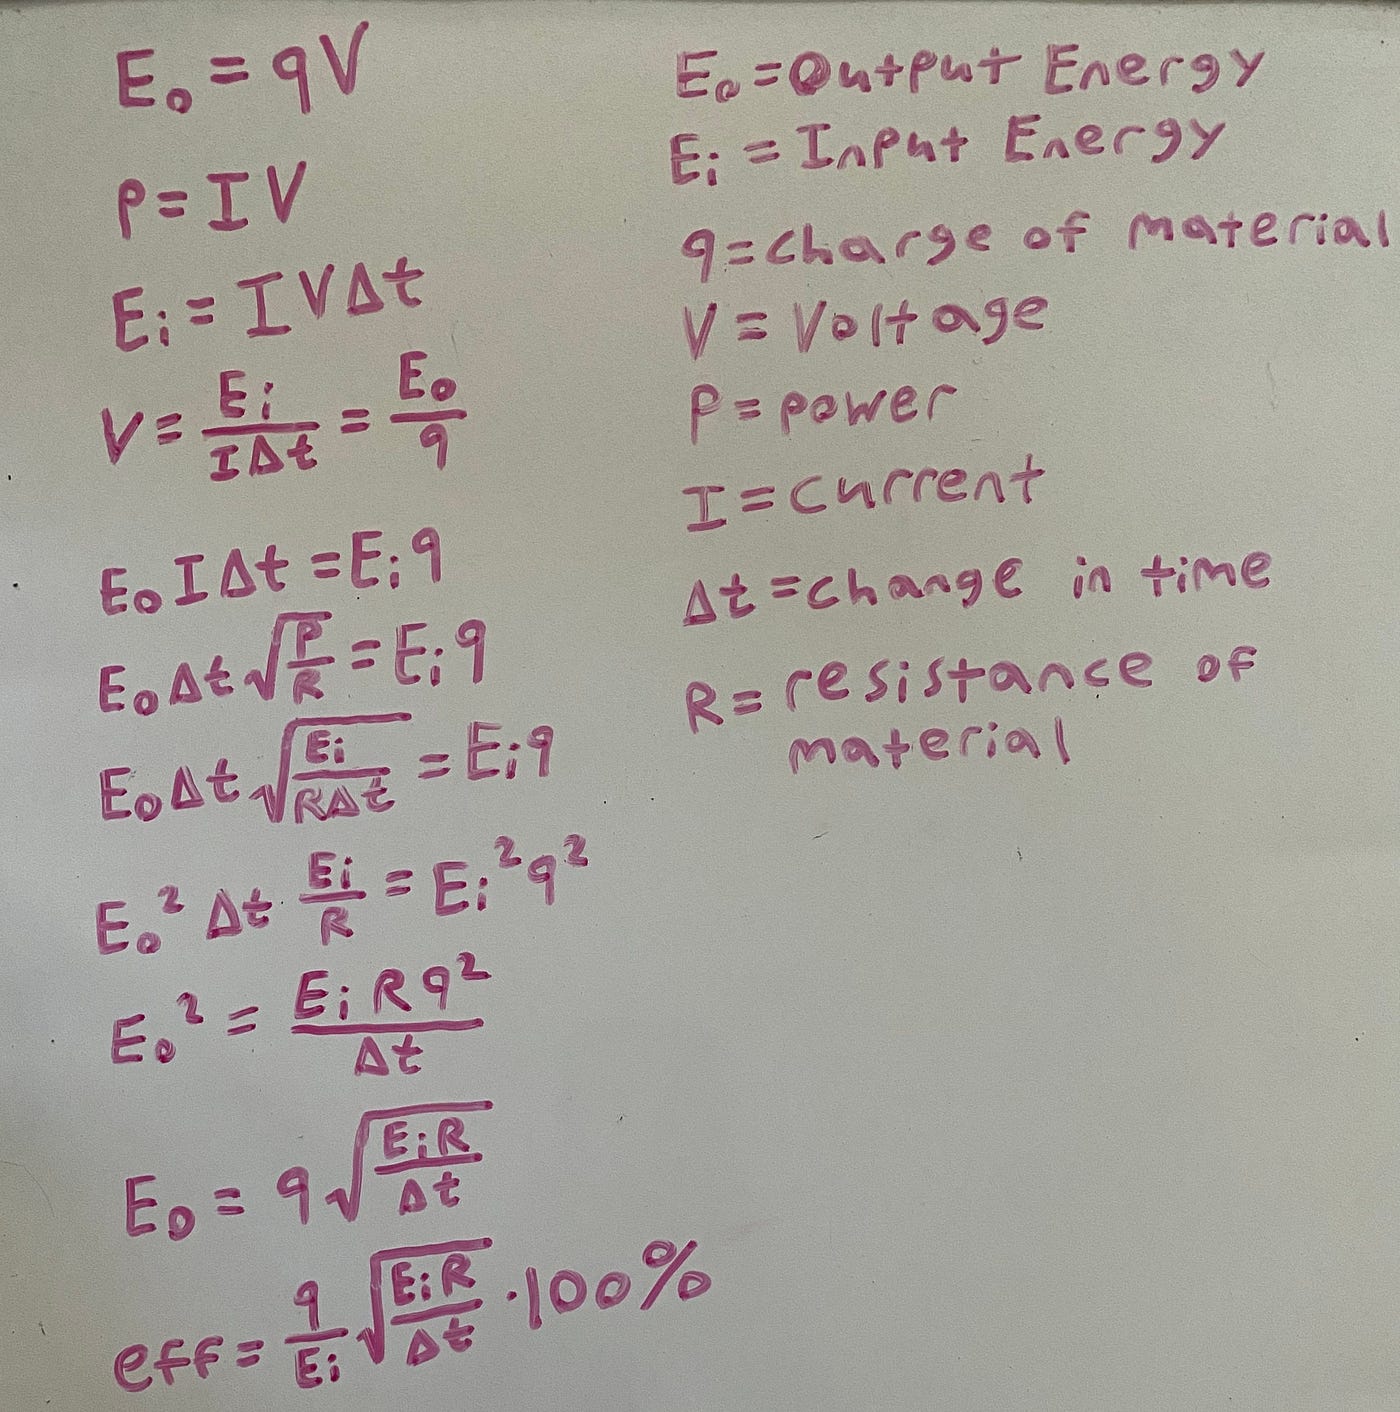 E₀ = qV
P = IV
Eᵢ = IVΔt
V = Eᵢ/(IΔt) = E₀/q
E₀IΔt = Eᵢq
E₀Δt√(P/R) = Eᵢq
E₀Δt√(Eᵢ/(RΔt)) = Eᵢq
E₀²Δt Eᵢ/R = Eᵢ²q²
E₀² = EᵢRq²/Δt
E₀ = q√(EᵢR/Δt)
eff = q/Eᵢ √(EᵢR/Δt) · 100%
E₀ = Output Energy
Eᵢ = Input Energy
q = charge of material
V = Voltage
P = power
I = current
Δt = change in time
R = resistance of
material